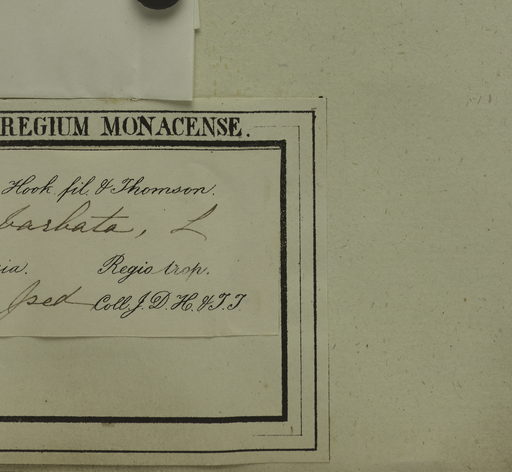 REGIUM MONACENSE.
Hook fil. & Thomson.
barbata, L
ia. Regio trop.
Coll. J. D. H. & T. T.